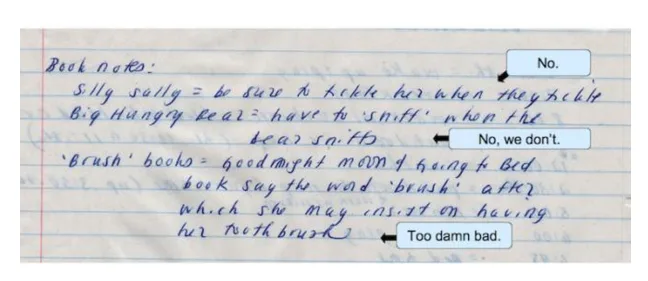 Book notes:
No.
Silly Sally = be sure to tickle her when they tickle
Big Hungry Bear = have to 'sniff' when the
bear sniffs
No, we don't.
'Brush' books = Goodnight moon & Going to Bed
book say the word 'brush' after
which she may insist on having
her toothbrush
Too damn bad.